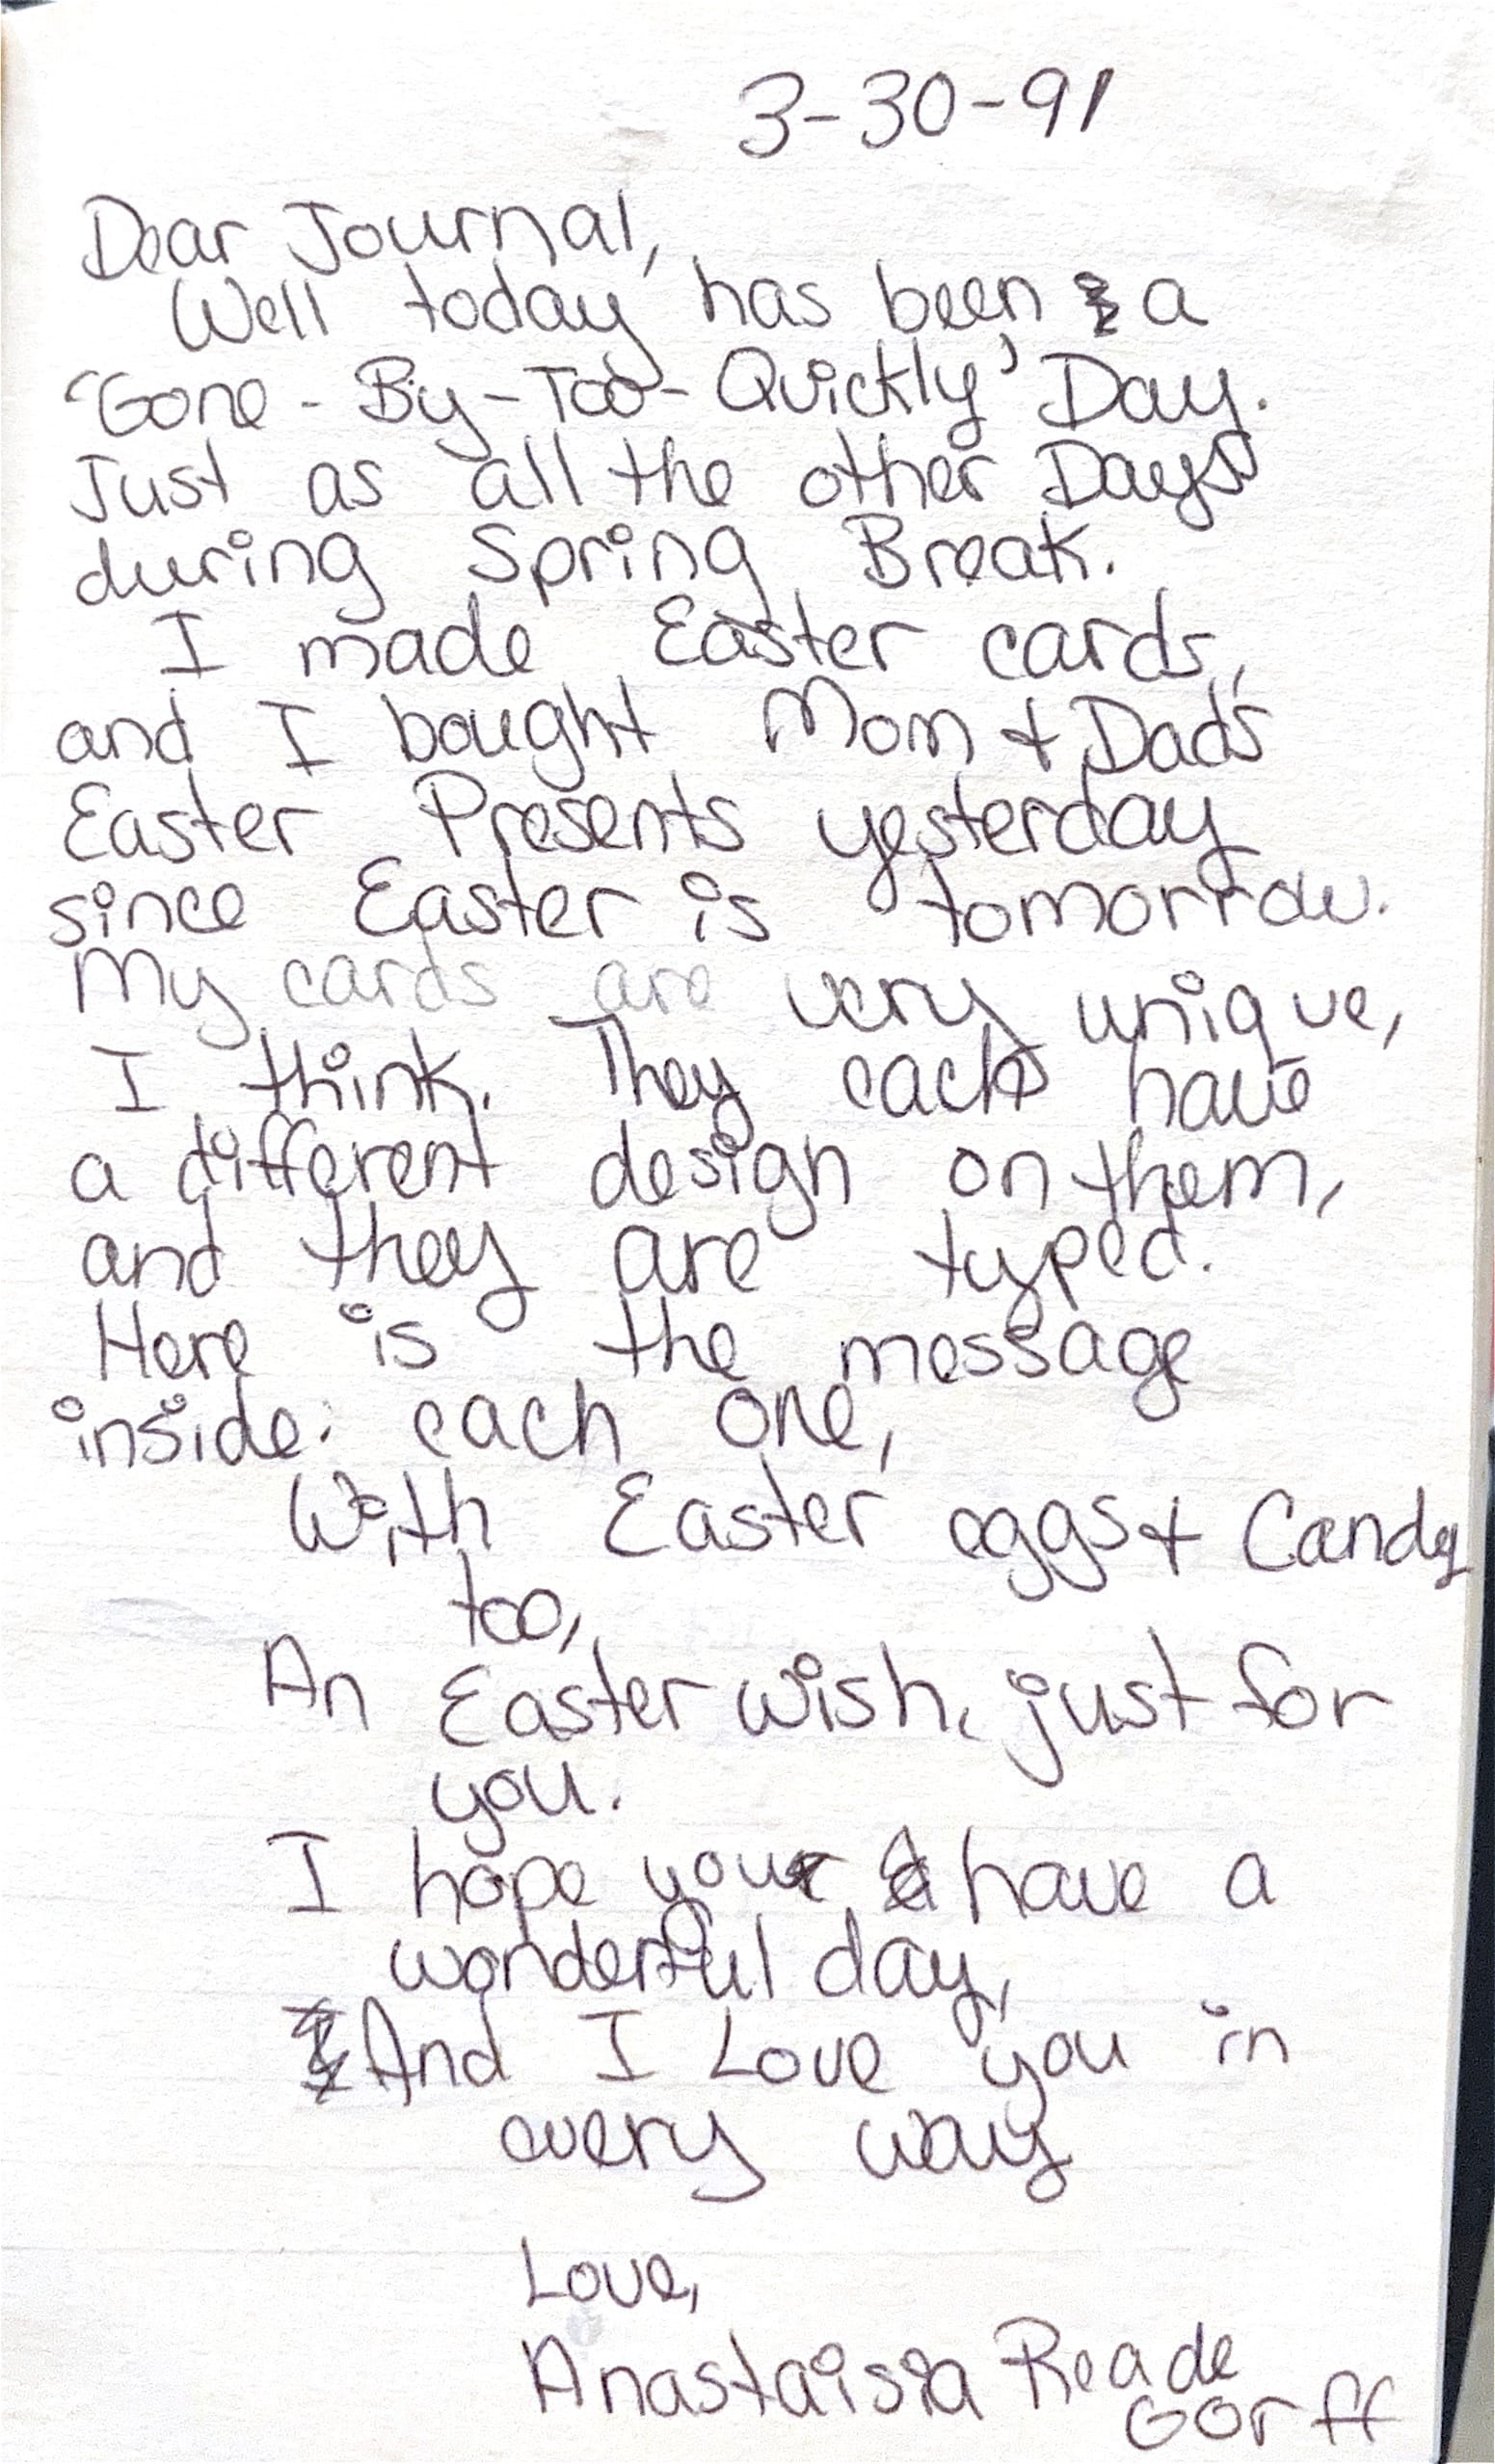 3-30-91
Dear Journal,
Well today has been a
"Gone-By-Too-Quickly" Day.
Just as all the other Days
during Spring Break.
I made Easter cards,
and I bought Mom + Dad's
Easter Presents yesterday
since Easter is tomorrow.
My cards are very unique,
I think. They each have
a different design on them,
and they are typed.
Here is the message
inside: each one,
With Easter eggs + Candy
too,
An Easter wish, just for
you.
I hope you have a
wonderful day,
And I Love you in
every way
Love,
Anastaisia Reade
Gorff